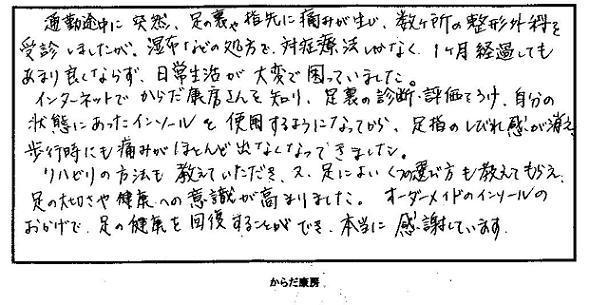 通勤途中に突然、足の裏や指先に痛みが生じ、数ヶ所の整形外科を
受診しましたが、湿布などの処方で、対症療法しかなく、1ヶ月経過しても
あまり良くならず、日常生活が大変で困っていました。
インターネットでからだ康房さんを知り、足裏の診断・評価をうけ、自分の
状態にあったインソールを使用するようになってから、足指のしびれ感が消え、
歩行時にも痛みがほとんど出なくなってきました。
リハビリの方法も教えていただき、又、足によいくつの選び方も教えてもらえ、
足の大切さや健康への意識が高まりました。オーダーメイドのインソールの
おかげで、足の健康を回復することができ、本当に感謝しています。
からだ康房